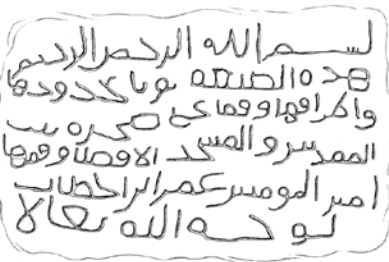 بسم الله الرحمن الرحيم
هذه الضيعه نوبا بحدودها
واطرافها وقفا على صخره بيت
المقدس والمسجد الاقصا وقفها
امير المومنين عمر ابن الخطاب
لوجه الله تعالا